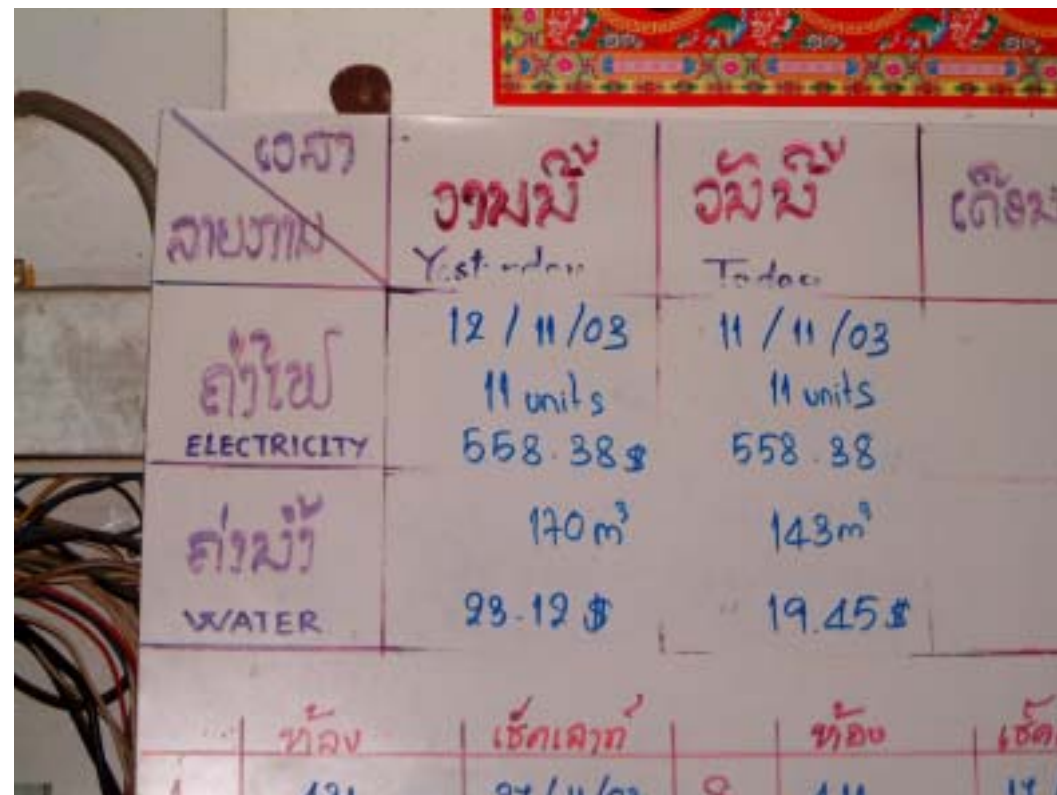 ເວລາ
ລາຍການ
ວານນີ້
Yesterday
ວັນນີ້
Today
ເດືອນ
ຄ່າໄຟ
ELECTRICITY
12/11/03
11 units
558.38$
11/11/03
11 units
558.38
ຄ່ານ້ຳ
WATER
170m³
23.12$
143m³
19.45$
ຫ້ອງ
ເຊັກເລາກ໌
ຫ້ອງ